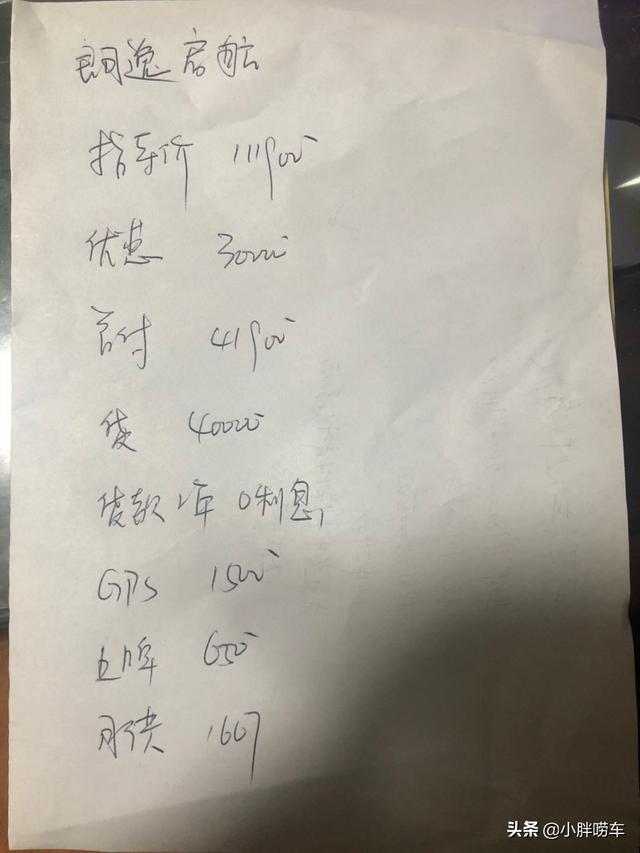 朗逸启航
指车价 111900
优惠 30000
首付 41900
贷 40000
贷款2年 0利息,
GPS 1500
上牌 650
月供 1667
头条 @小胖唠车